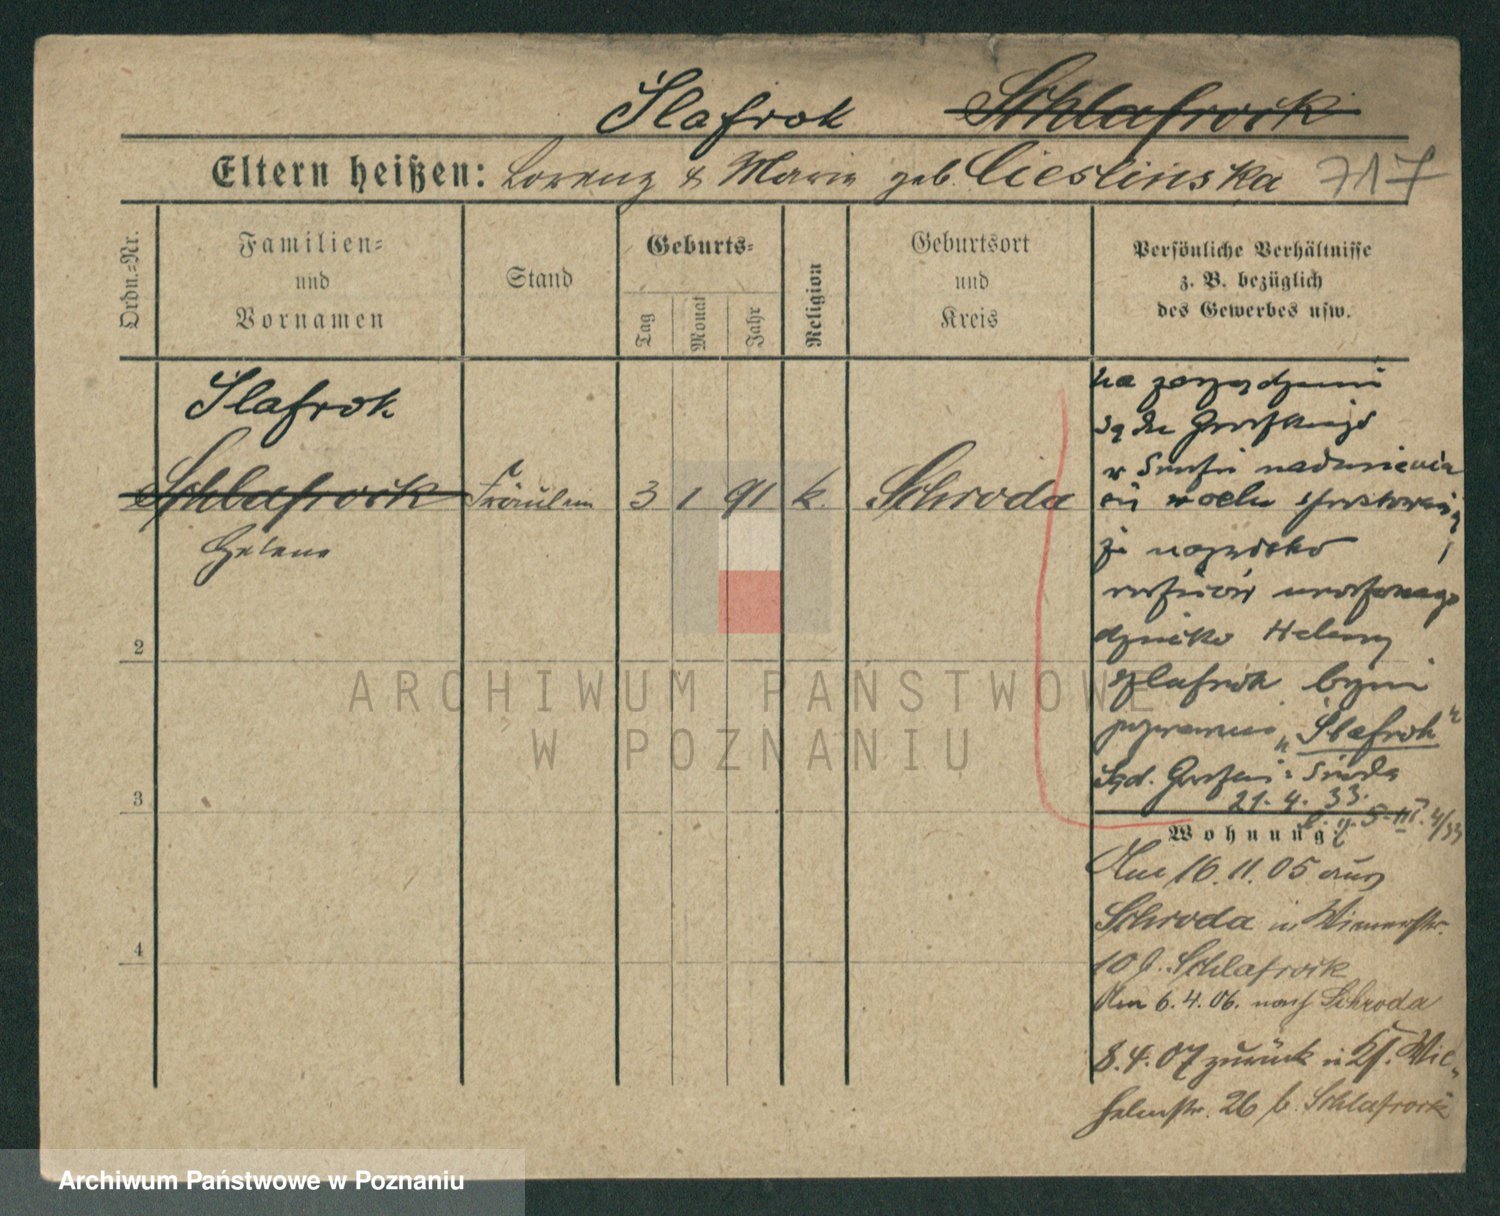 Ślafrok Schlafrock
Eltern heißen: Lorenz & Marie geb. Cieslinska 717
Ordn.=Nr.
Familien=
und
Vornamen
Stand
Geburts=
Tag
Monat
Jahr
Religion
Geburtsort
und
Kreis
Persönliche Verhältnisse
z. B. bezüglich
des Gewerbes usw.
Ślafrok
Schlafrock Fräulein 3 1 91 k. Schroda
Helene
2
3
4
na zarządzenie
Sądu Grodzkiego
w Środzie
w celu sprostowania
że nazwisko
Heleny
Szlafrok brzmi
poprawnie „Ślafrok"
Sąd. Grodzki: Środa
21. 4. 33.
4/33
Wohnung:
Am 16. 11. 05 aus
Schroda in Wienerstr.
10 b. Schlafrock
Am 6. 4. 06. nach Schroda
8. 4. 07 zurück in Kl. Wil-
helmstr. 26 b. Schlafrock
ARCHIWUM PAŃSTWOWE
W POZNANIU
Archiwum Państwowe w Poznaniu